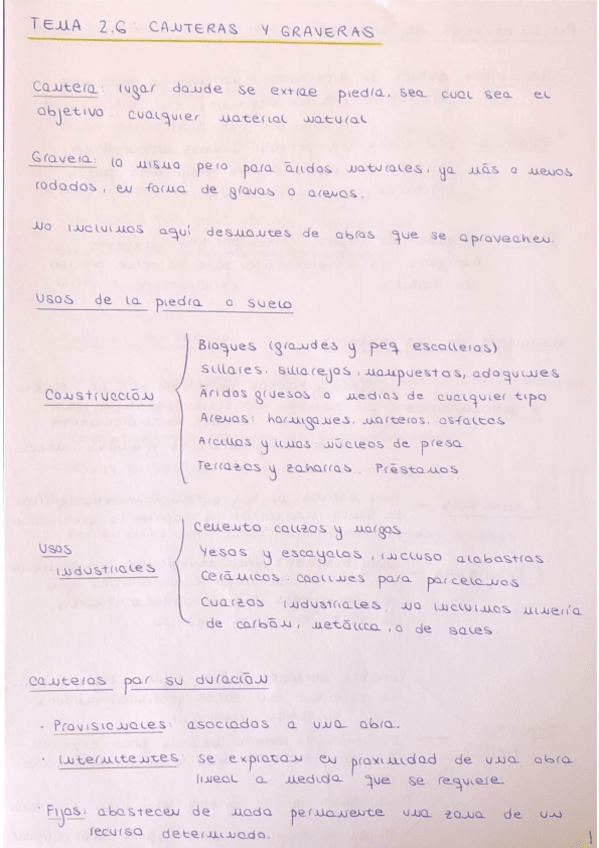 TEMA 2.6: CANTERAS Y GRAVERAS
Cantera: lugar donde se extrae piedra, sea cual sea el
objetivo. cualquier material natural
Gravera: lo mismo pero para áridos naturales, ya más o menos
rodados, en forma de gravas o arenas.
No incluimos aquí desmontes de obras que se aprovechen.
Usos de la piedra o suelo
Construcción
Bloques (grandes y peq escolleras)
Sillares, sillarejos, mampuestos, adoquines
Áridos gruesos o medios de cualquier tipo
Arenas: hormigones, morteros, asfaltos
Arcillas y limos: núcleos de presa
Terrazos y zahorras. Préstamos
Usos
industriales
Cemento: calizas y margas
Yesos y escayolas, incluso alabastros.
Cerámicos: caolines para porcelanas
Cuarzos industriales. no incluimos minería
de carbón, metálica, o de sales.
Canteras por su duración
· Provisionales: asociadas a una obra.
· Intermitentes: se explotan en proximidad de una obra
lineal a medida que se requiere
· Fijas: abastecen de modo permanente una zona de un
recurso determinado.
1